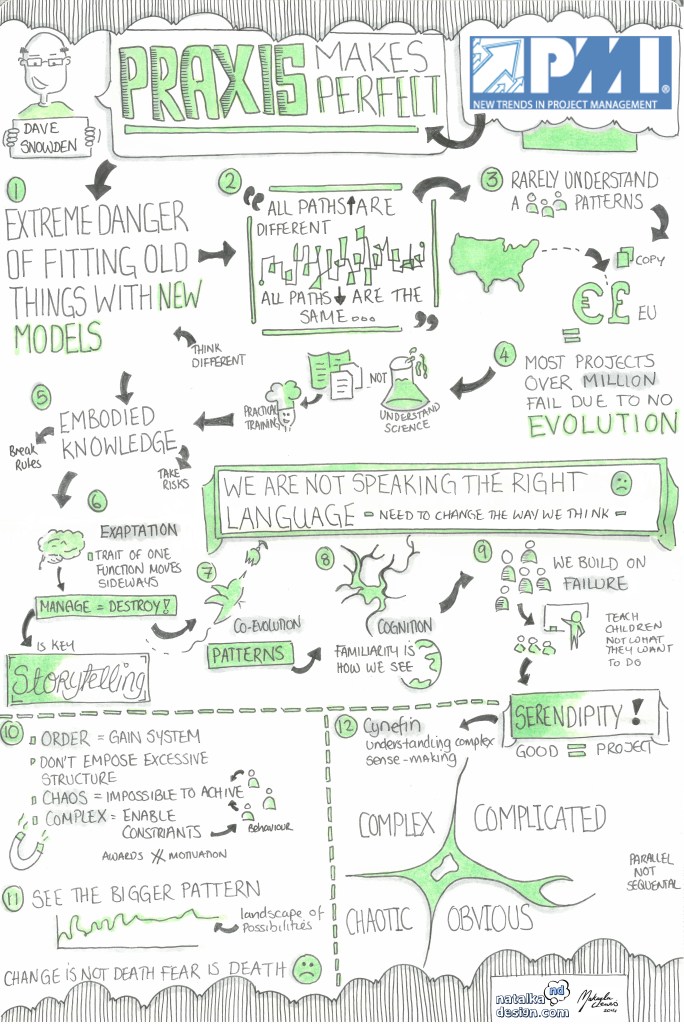 DAVE
SNOWDEN
PRAXIS MAKES
PERFECT
PMI®
NEW TRENDS IN PROJECT MANAGEMENT
1
EXTREME DANGER
OF FITTING OLD
THINGS WITH NEW
MODELS
THINK
DIFFERENT
2
"ALL PATHS ARE
DIFFERENT
ALL PATHS ARE THE
SAME..."
3
RARELY UNDERSTAND
A PATTERNS
COPY
€£ EU
=
4
MOST PROJECTS
OVER MILLION
FAIL DUE TO NO
EVOLUTION
NOT
UNDERSTAND
SCIENCE
PRACTICAL
TRAINING
5
EMBODIED
KNOWLEDGE
Break
Rules
TAKE
RISKS
WE ARE NOT SPEAKING THE RIGHT
LANGUAGE = NEED TO CHANGE THE WAY WE THINK =
6
EXAPTATION
TRAIT OF ONE
FUNCTION MOVES
SIDEWAYS
MANAGE = DESTROY!
IS KEY
Storytelling
7
CO-EVOLUTION
PATTERNS
8
COGNITION
FAMILIARITY IS
HOW WE SEE
9
WE BUILD ON
FAILURE
TEACH
CHILDREN
NOT WHAT
THEY WANT
TO DO
SERENDIPITY!
GOOD = PROJECT
10
ORDER = GAIN SYSTEM
DON'T EMPOSE EXCESSIVE
STRUCTURE
CHAOS = IMPOSSIBLE TO ACHIVE
COMPLEX = ENABLE
CONSTRIANTS
Behaviour
AWARDS ≠ MOTIVATION
11
SEE THE BIGGER PATTERN
landscape of
Possibilities
CHANGE IS NOT DEATH FEAR IS DEATH
12
Cynefin
understanding complex
sense-making
COMPLEX
COMPLICATED
CHAOTIC
OBVIOUS
PARALLEL
NOT
SEQUENTIAL
natalka nd
design.com